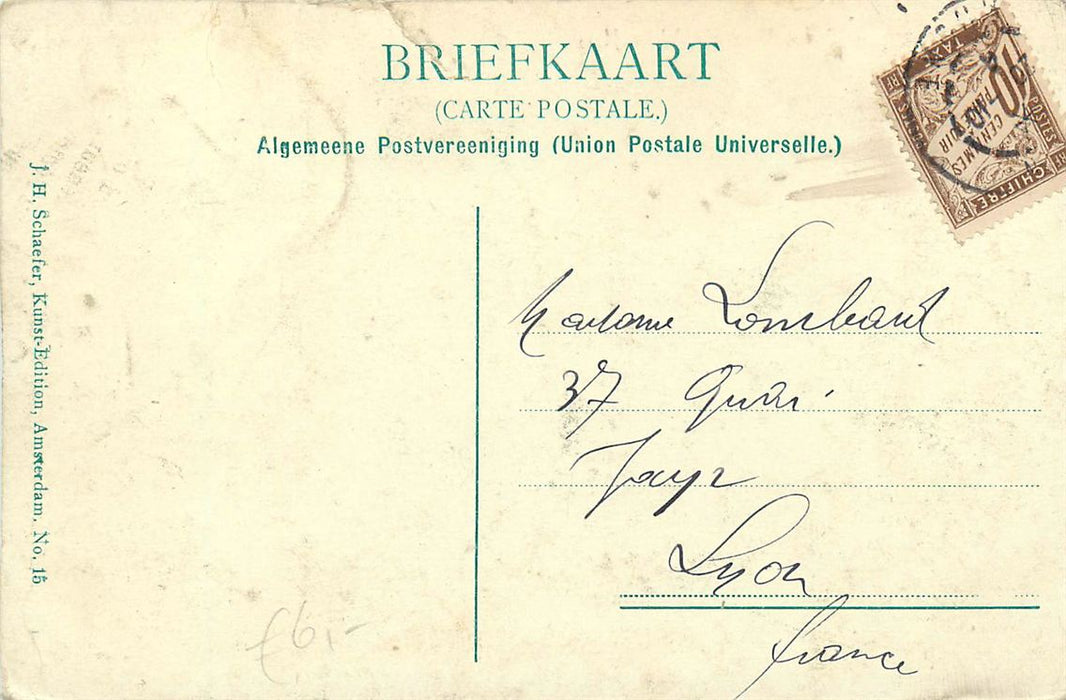 BRIEFKAART
(CARTE POSTALE.)
Algemeene Postvereeniging (Union Postale Universelle.)
10
CENTIMES
TAXE
POSTES
CHIFFRE
J. H. Schaefer, Kunst-Edition, Amsterdam, No. 15
Madame Lombard
37 Quai
Jayr
Lyon
france
£6,-